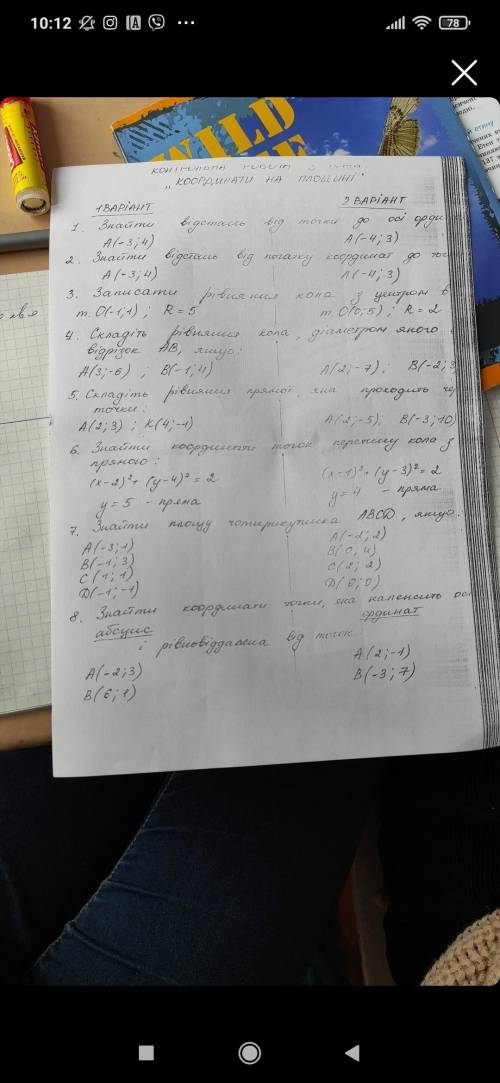 10:12 78
WILD
КОНТРОЛЬНА РОБОТА З ТЕМИ
„КООРДИНАТИ НА ПЛОЩИНІ"
1 ВАРІАНТ 2 ВАРІАНТ
1. Знайти відстань від точки до осі ордин
A(-3;4) A(-4;3)
2. Знайти відстань від початку координат до точ
A(-3;4) A(-4;3)
3. Записати рівняння кола з центром в
т. O(-1;1); R=5 т. O(0;5); R=2
4. Складіть рівняння кола, діаметром якого є
відрізок AB, якщо:
A(3;-6); B(-1;4) A(2;-7); B(-2;3
5. Складіть рівняння прямої, яка проходить чер
точки:
A(2;3); K(4;-1) A(2;-5); B(-3;10)
6. Знайти координати точок перетину кола з
прямою:
(x-2)²+(y-4)²=2 (x-1)²+(y-3)²=2
y=5 - пряма y=4 - пряма
7. Знайти площу чотирикутника ABCD, якщо:
A(-3;1) A(-2;2)
B(-1;3) B(0;4)
C(1;1) C(2;2)
D(-1;-1) D(0;0)
8. Знайти координати точки, яка належить осі
абсцис ординат
і рівновіддалена від точок
A(-2;3) A(2;-1)
B(6;1) B(-3;7)